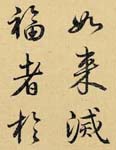 如来滅
福者於